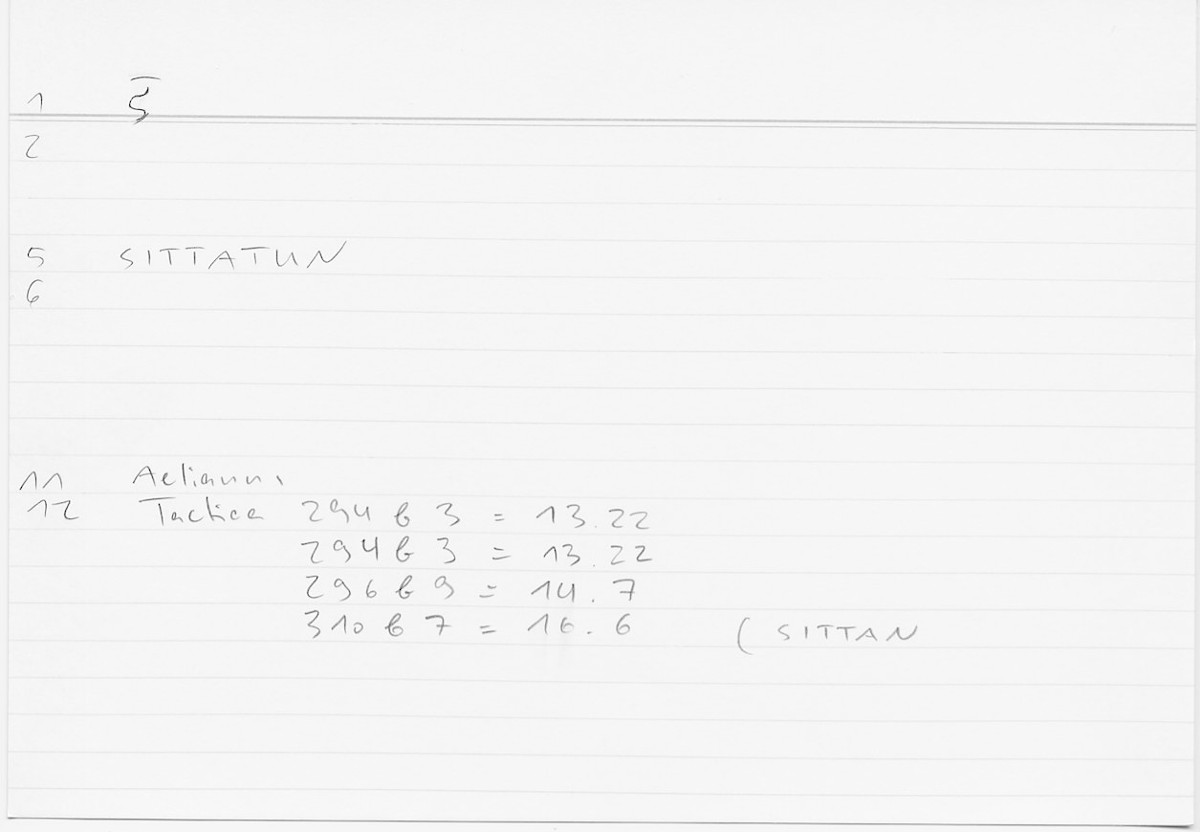 1 ς̅
2
5 SITTATUN
6
11 Aelianus
12 Tactica 294 b 3 = 13.22
294 b 3 = 13.22
296 b 9 = 14.7
310 b 7 = 16.6 ( SITTAN